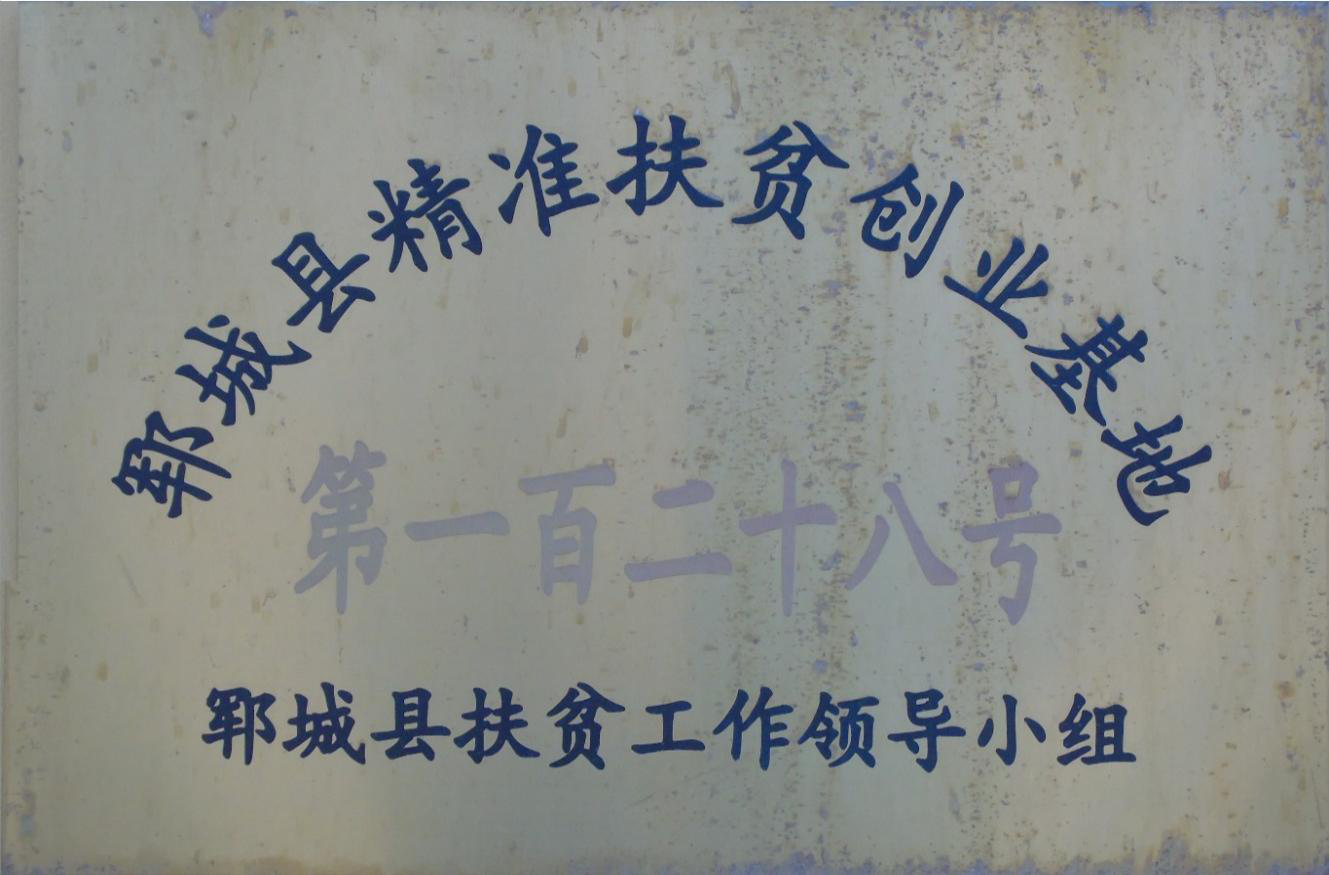 郓城县精准扶贫创业基地
第一百二十八号
郓城县扶贫工作领导小组